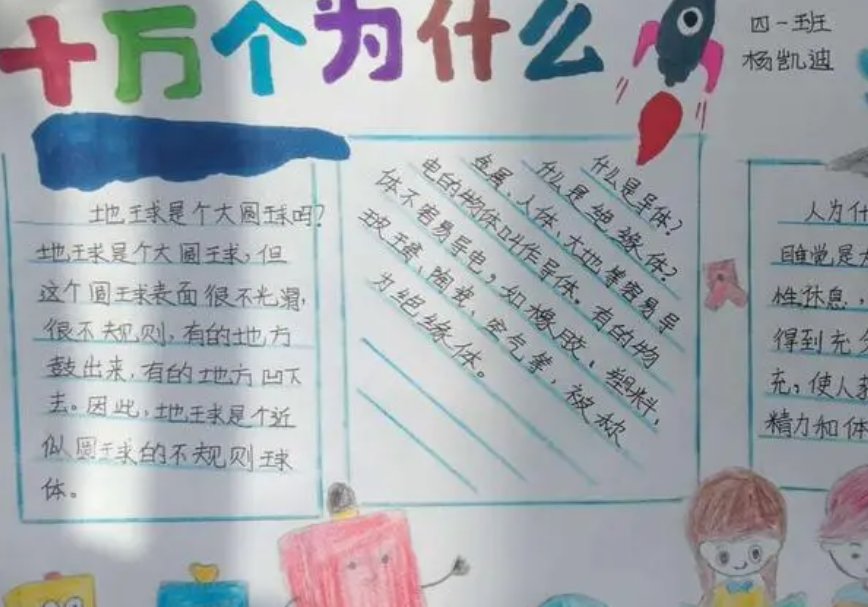 十万个为什么
四一班
杨凯迪
地球是个大圆球吗?
地球是个大圆球,但
这个圆球表面很不光滑,
很不规则,有的地方
鼓出来,有的地方凹下
去。因此,地球是个近
似圆球的不规则球
体。
什么是导体?
什么是绝缘体?
金属、人体、大地等容易导
电的物体叫作导体。有的物
体不容易导电,如橡胶、塑料、
玻璃、陶瓷、空气等,被称
为绝缘体。
人为什
睡觉是
性休息,
得到充分
充,使人
精力和体